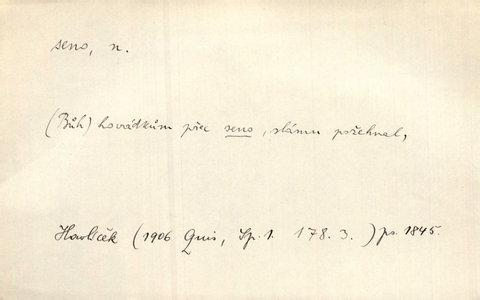 seno, n.
(Bůh) hovádkům přec seno, slámu požehnal,
Havlíček (1906 Quis, Sp. 1. 178. 3.) ps. 1845.